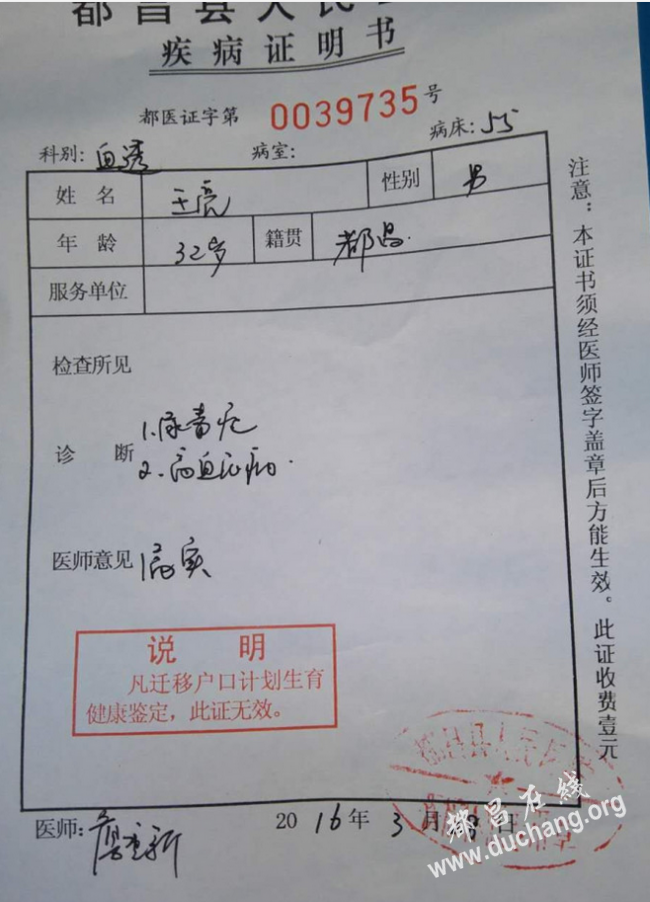 都昌县人民
疾病证明书
都医证字第 0039735 号
科别: 血透 病室: 病床: 55
姓名 王亮 性别 男
年龄 32岁 籍贯 都昌.
服务单位
检查所见
诊断 1.尿毒症
2.高血压病.
医师意见 病实
说 明
凡迁移户口计划生育
健康鉴定，此证无效。
医师: 2016年3月 日
注意：本证书须经医师签字盖章后方能生效。此证收费壹元
都昌县人民医院
都昌在线
www.duchang.org